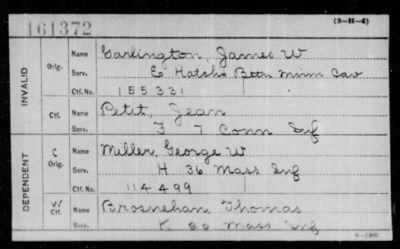 161372
(3-H-4)
INVALID
Orig.
Name Garlington, James W
Serv. E Hatch's Battn Minn Cav
Ctf. No. 155331
Ctf.
Name Petit, Jean
Serv. F 7 Conn Inf
DEPENDENT
C
Orig.
Name Miller, George W
Serv. H 36 Mass Inf
Ctf. No. 114499
W
Ctf.
Name Brosnehan Thomas
Serv. K 20 Mass Inf